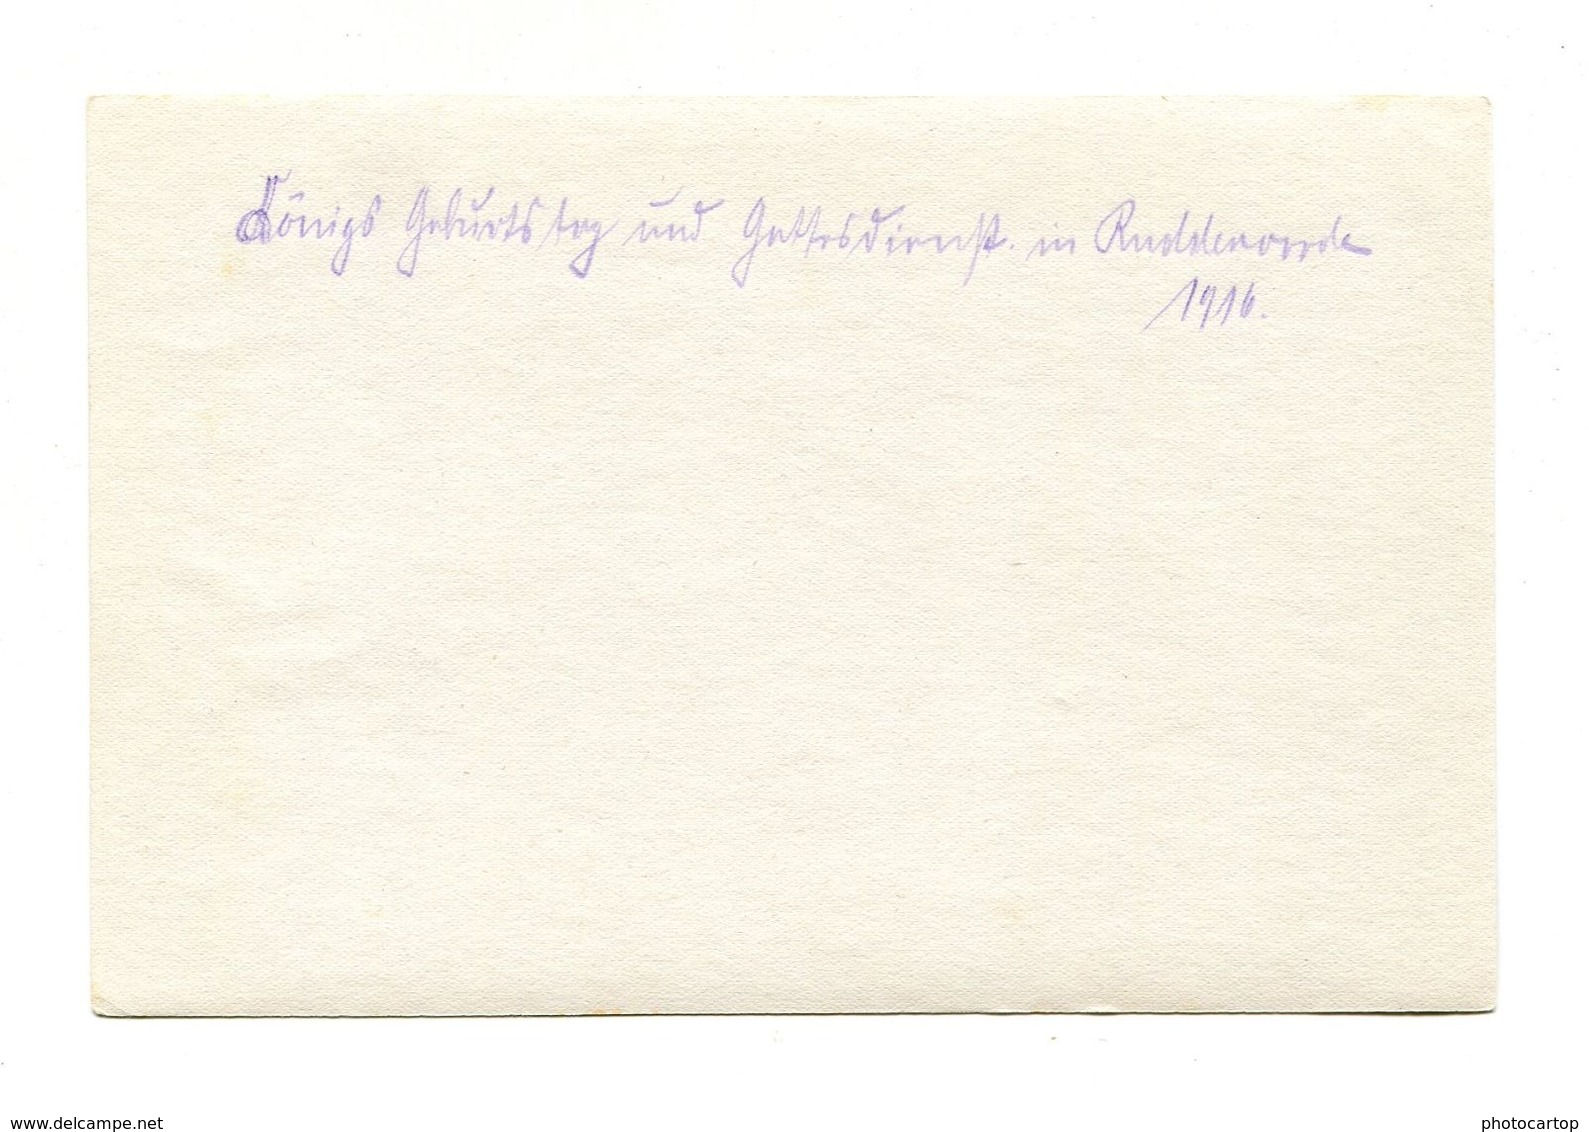 Königs Geburtstag und Gottesdienst. in Ruddervoorde
1916.
www.delcampe.net
photocartop